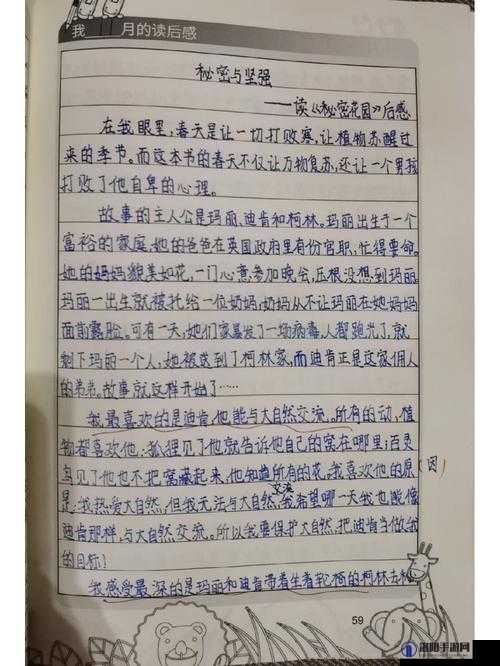 我 月的读后感
秘密与坚强
——读《秘密花园》后感
在我眼里,春天是让一切打败寒,让植物苏醒过
来的季节。而这本书的春天不仅让万物复苏,还让一个男孩
打败了他自卑的心理。
故事的主人公是玛丽、迪肯和柯林。玛丽出生于一个
富裕的家庭,她的爸爸在英国政府里有份官职,忙得要命。
她的妈妈貌美如花,一门心意参加晚会,压根没想到玛丽。
玛丽一出生就被托给一位奶妈,奶妈从不让玛丽在她妈妈
面前露脸。可有一天,她们家暴发了一场病毒,人都跑光了,就
剩下玛丽一个人,她被送到了柯林家,而迪肯正是这家佣人
的弟弟。故事就这样开始了……
我最喜欢的是迪肯,他能与大自然交流。所有的动,植
物都喜欢他:狐狸见了他就告诉他自己的窝在哪里;百灵
鸟见了他也不把窝藏起来,他知道所有的花。我喜欢他的原(因)
是:我热爱大自然,但我无法与大自然交流,我希望哪一天我也能像
迪肯那样,与大自然交流。所以我要保护大自然,把迪肯当做我
的目标!
我感受最深的是玛丽和迪肯带着坐着轮椅的柯林去
59
洛阳手游网